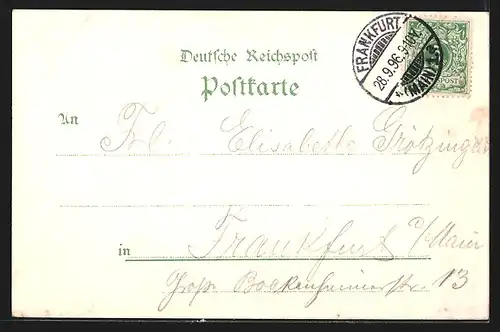 Deutsche Reichspost
Postkarte
FRANKFURT
28.9.96. 9-10V.
(MAIN) 1.
An Frl. Elisabethe Grötzinger
in Frankfurt a/Main
Große Bockenheimerstr. 13